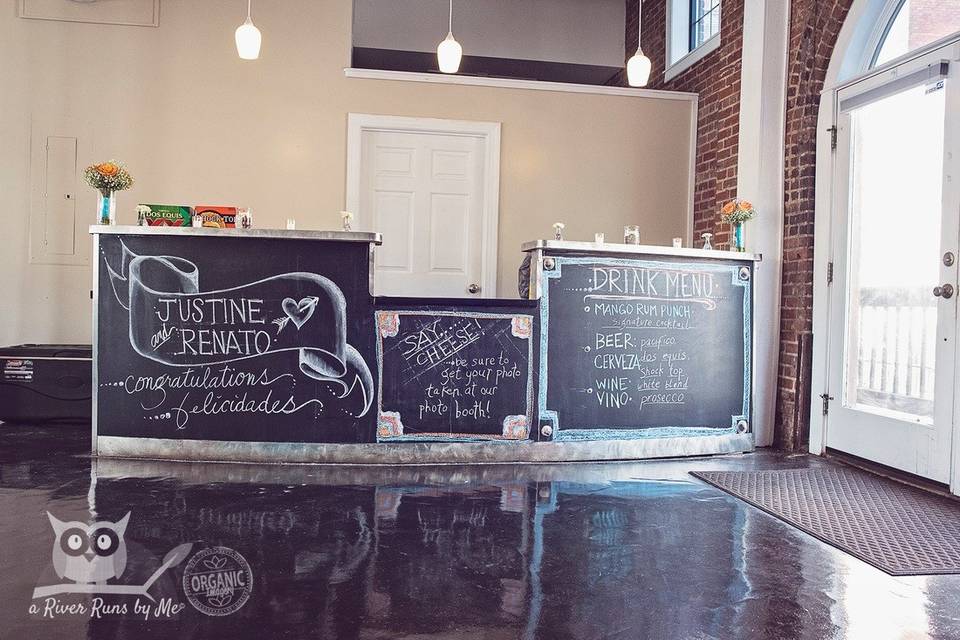 DOS EQUIS
SHOCK TOP
JUSTINE
and
RENATO
Congratulations
felicidades
SAY...
CHEESE!
...be sure to
get your photo
taken at our
photo booth!
DRINK MENU
MANGO RUM PUNCH
signature cocktail
BEER: pacifico
CERVEZA dos equis
shock top
WINE: white blend
VINO prosecco
a River Runs by Me
ORGANIC
images